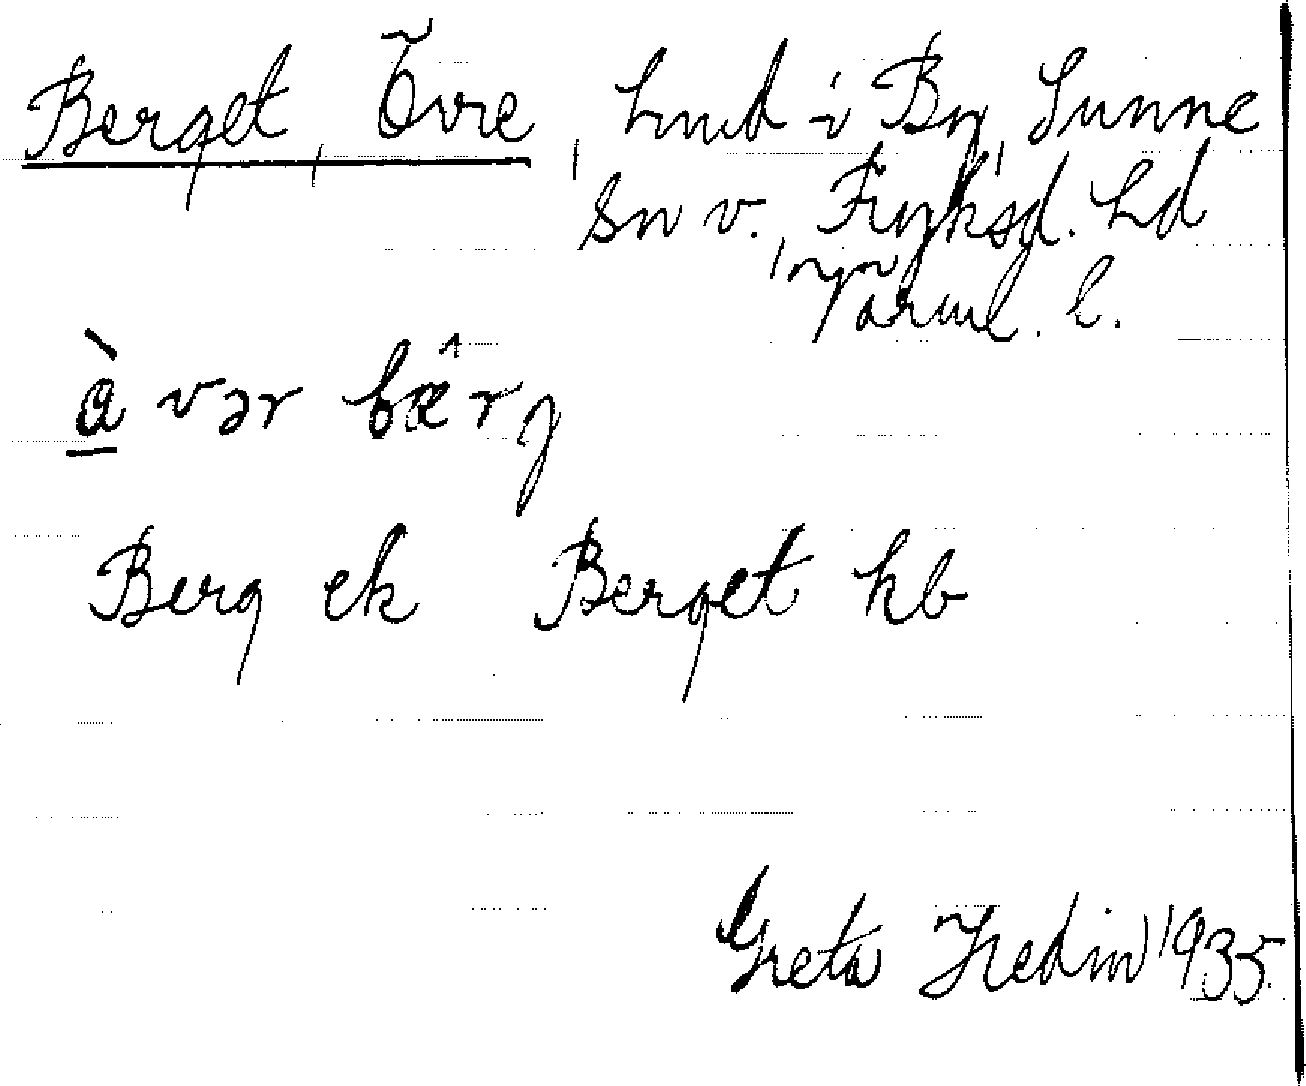 Berget, Övre, hmd i By, Sunne
sn v., Fryksd. hd
Värml. l.
à vər bærg
Berg ek Berget kb
Greta Hedin 1935.